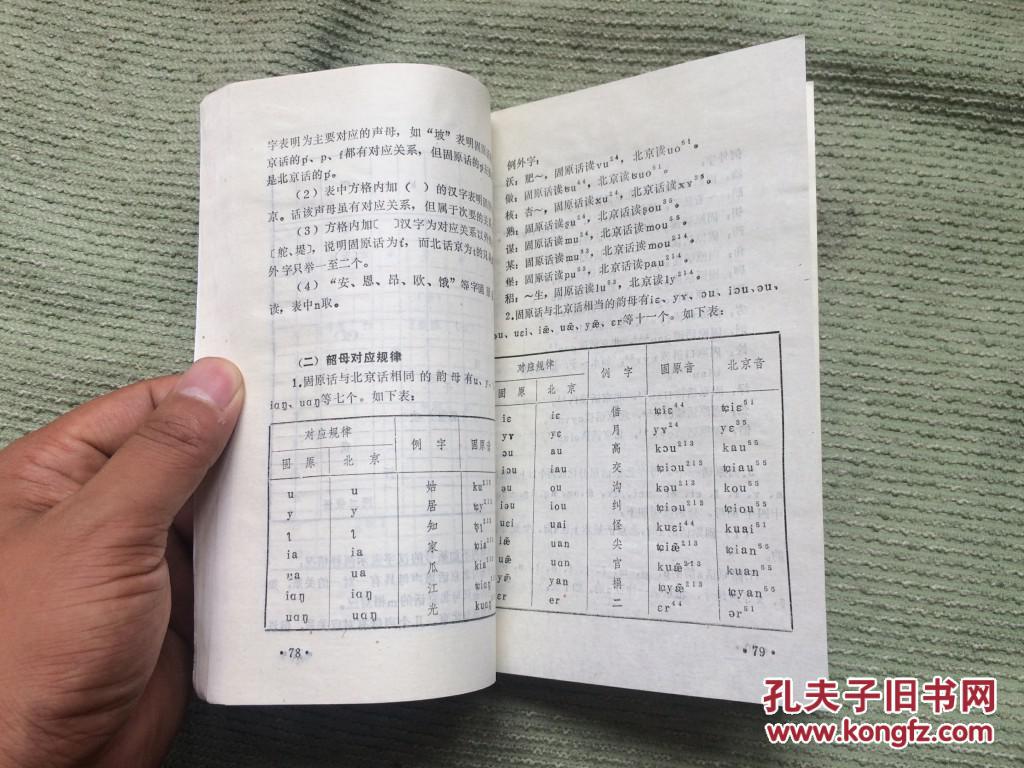 字表明为主要对应的声母，如“坡”表明固原
京话的p‘、p、f都有对应关系，但固原话的p
是北京话的p‘。
（2）表中方格内加（ ）的汉字表明
京。话该声母虽有对应关系，但属于次要的关
（3）方格内加〔 〕汉字为对应关系以外
〔舵、堤〕，说明固原话为t‘，而北话京为t的
外字只举一至二个。
（4）“安、恩、昂、欧、饿”等字
读，表中n取。
（二）韶母对应规律
1.固原话与北京话相同的韵母有u、y、
iɑŋ、uɑŋ等七个。如下表：
对应规律 例字 固原音
固原 北京
u u 姑 ku²¹³
y y 居 ʨy²¹³
ʅ ʅ 知
ia ia 家 ʨia²¹³
ua ua 瓜 kia²¹³
iɑŋ iɑŋ 江 ʨiɑŋ
uɑŋ uɑŋ 光 kuɑŋ
·78·
例外字：
沃：肥～，固原话读vu²⁴，北京读uo⁵¹。
做：固原话读ʦu⁴⁴，北京话读ʦuo⁵¹。
核：杏～，固原话读xu²⁴，北京话读xɤ³⁵。
熟：固原话读ʂu²⁴，北京话读ʂou³⁵。
谋：固原话读mu²⁴，北京话读mou³⁵。
某：固原话读mu⁵³，北京话读mou²¹⁴。
堡：固原话读pu⁵³，北京话读pau²¹⁴。
稆：～生，固原话读lu⁵³，北京话读ly²¹⁴。
2.固原话与北京话相当的韵母有iɛ、yɤ、ɔu、iɔu、əu、
iəu、uɛi、iæ̃、uæ̃、yæ̃、ɛr等十一个。如下表：
对应规律 例字 固原音 北京音
固原 北京
iɛ iɛ 借 ʨiɛ⁴⁴ ʨiɛ⁵¹
yɤ yɛ 月 yɤ²⁴ yɛ⁵¹
ɔu au 高 kɔu²¹³ kau⁵⁵
iɔu iau 交 ʨiɔu²¹³ ʨiau⁵⁵
əu ou 沟 kəu²¹³ kou⁵⁵
iəu iou 纠 ʨiəu²¹³ ʨiou⁵⁵
uɛi uai 怪 kuɛi⁴⁴ kuai⁵¹
iæ̃ uan 尖 ʨiæ̃²¹³ ʨian⁵⁵
uæ̃ uan 官 kuæ̃²¹³ kuan⁵⁵
yæ̃ yan 捐 ʨyæ̃²¹³ ʨyan⁵⁵
ɛr er 二 ɛr⁴⁴ ər⁵¹
·79·
孔夫子旧书网
www.kongfz.com